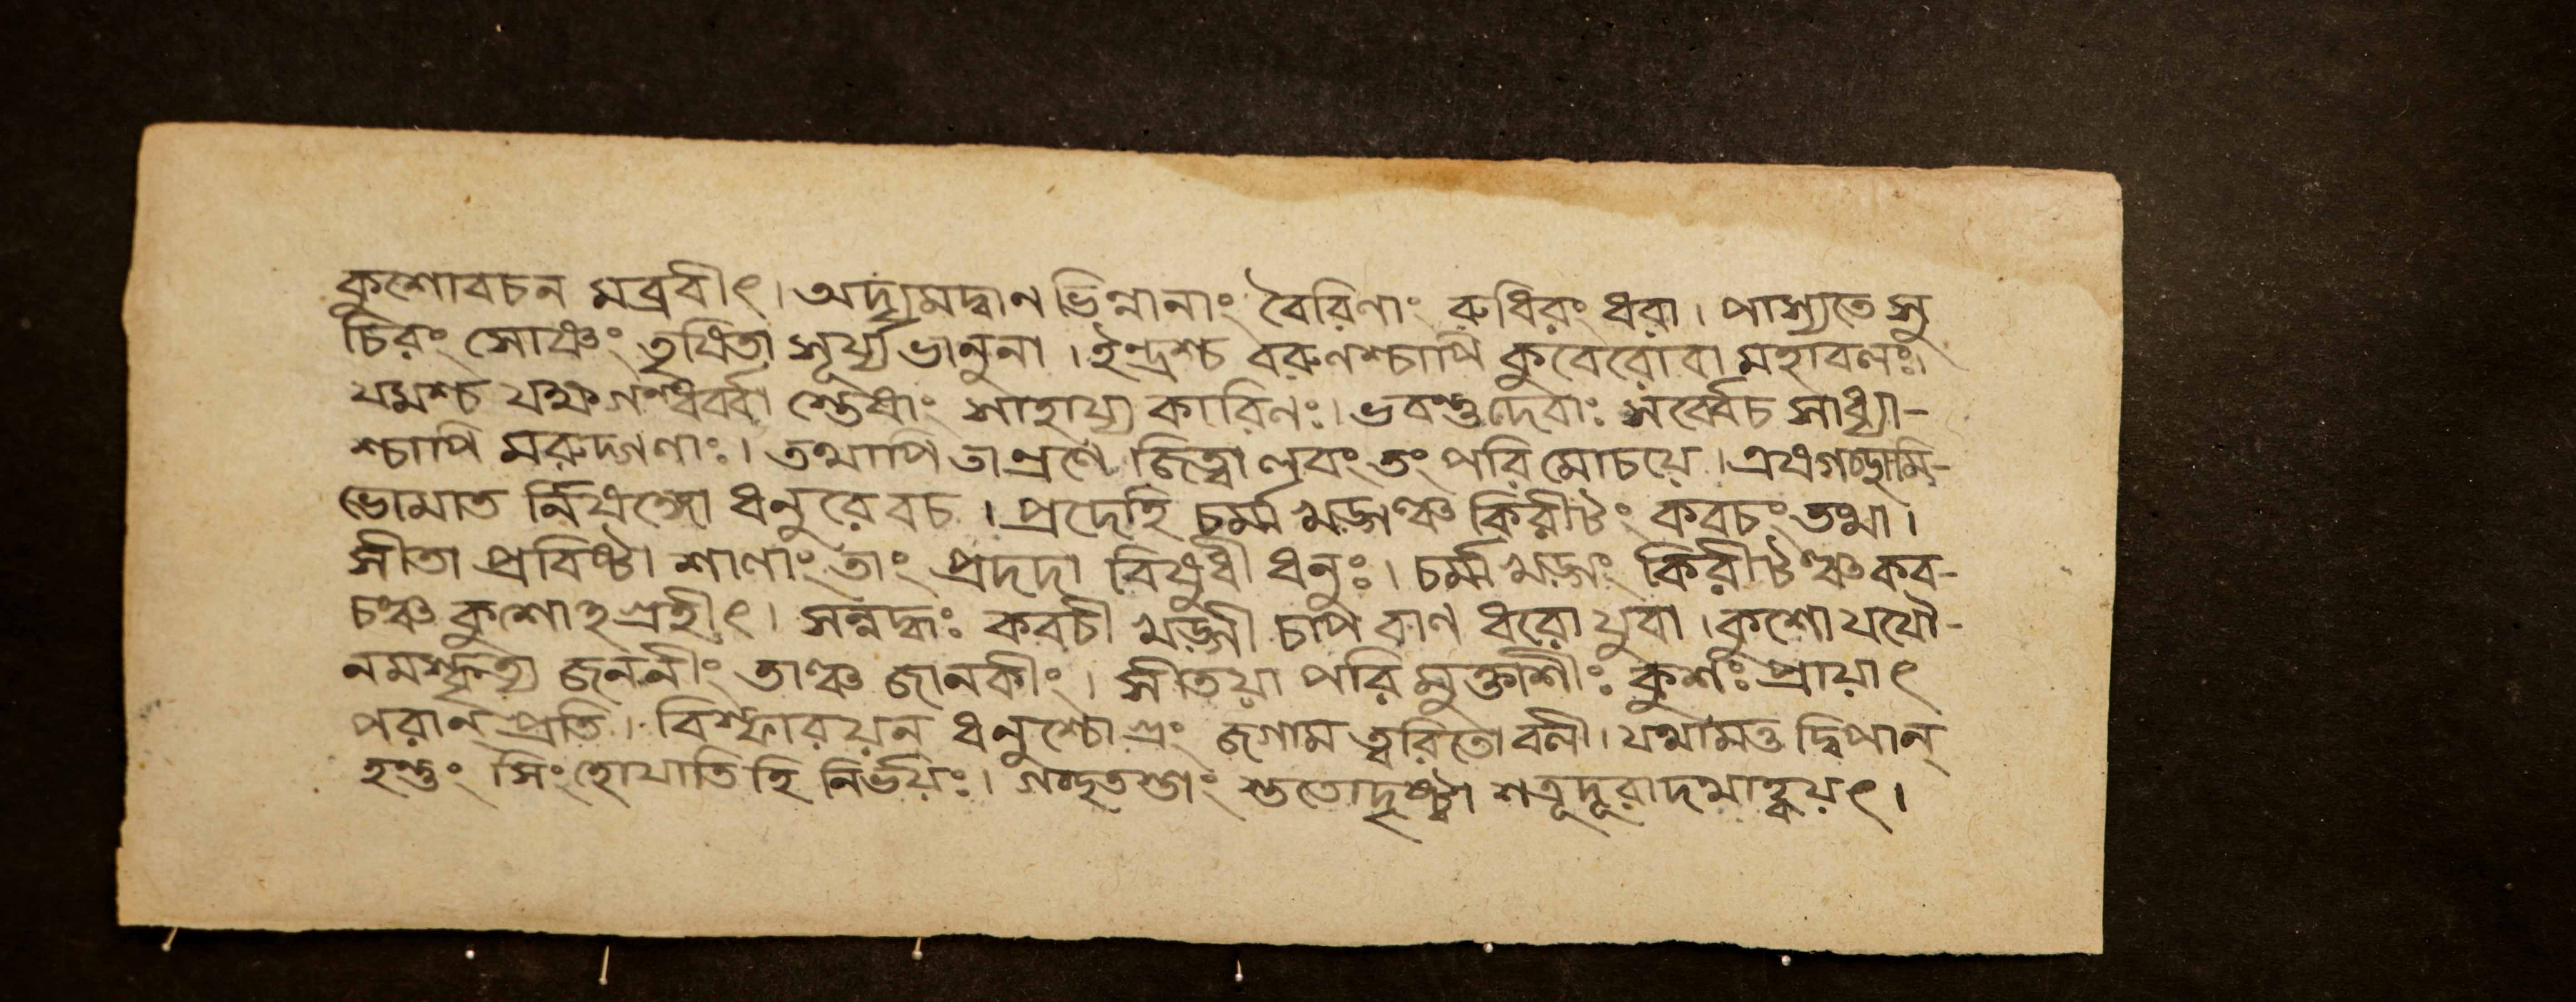 কুশোবচন মব্রবীৎ। অদ্যমদ্বান ভিন্নানাং বৈরিণাং রুধিরং ধরা। পাস্যতে সু
চিরং সোষ্ণং তৃষিতা সূর্য্য ভানুনা। ইন্দ্রশ্চ বরুণশ্চাপি কুবেরোবা মহাবলঃ।
যমশ্চ যক্ষগন্ধর্ব্বা স্তেষাং সাহায্য কারিণঃ। ভবন্তুদেবাঃ সর্ব্বেচ সাধ্যা-
শ্চাপি মরুদ্গণাঃ। তথাপি তান্রণে জিত্বা লবংতং পরি মোচয়ে। এষগচ্ছামি-
ভোমাত র্নিষঙ্গো ধনুরেবচ। প্রদেহি চর্ম্ম খড়্গঞ্চ কিরীটং কবচং তথা।
সীতা প্রবিষ্টা শালাং তাং প্রদদা বিষুধী ধনুঃ। চর্ম্ম খড়্গং কিরীটঞ্চ কব-
চঞ্চ কুশোহগ্রহীৎ। সন্নদ্ধঃ কবচী খড়্গী চাপ বাণ ধরো যুবা। কুশো যযৌ-
নমস্কৃত্য জননীং তাঞ্চ জানকীং। সীতয়া পরি মুক্তাশীঃ কুশঃ প্রায়াৎ
পরান্ প্রতি। বিস্ফারয়ন্ ধনুশ্চোগ্রং জগাম ত্বরিতো বলী। যথামত্ত দ্বিপান্
হন্তুং সিংহোযাতি হি নির্ভয়ঃ। গচ্ছতস্তাং স্ততোদৃষ্ট্বা শত্রূদূরাদথাহ্বয়ৎ।